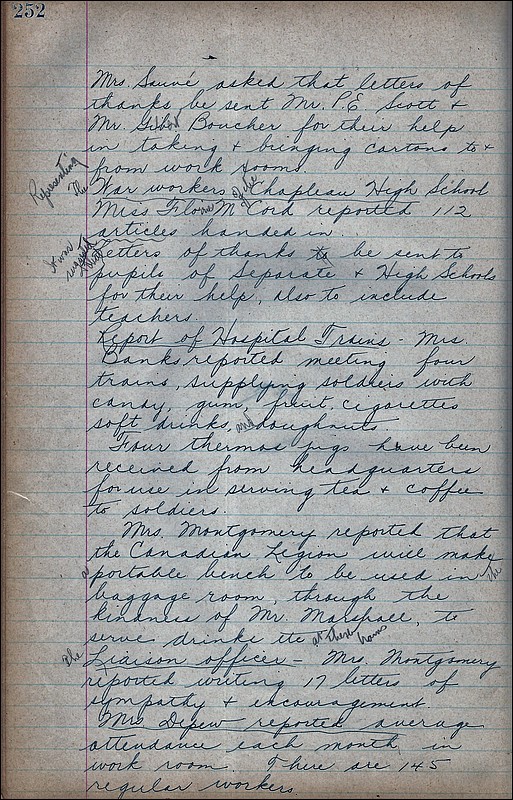 252
Mrs. Sauvé asked that letters of
thanks be sent Mr. P.E. Scott &
Mr. Gibbs Boucher for their help
in taking & bringing cartons to &
from work rooms.
Representing
The War workers of the Chapleau High School
Miss Florine McCord reported 112
articles handed in.
It was suggested that
Letters of thanks to be sent to
pupils of Separate & High Schools
for their help, also to include
teachers.
Report of Hospital Trains - Mrs.
Banks reported meeting four
trains, supplying soldiers with
candy, gum, fruit, cigarettes
soft drinks, and doughnuts.
Four thermos jugs have been
received from headquarters
for use in serving tea & coffee
to soldiers.
Mrs. Montgomery reported that
the Canadian Legion will make
a portable bench to be used in the
baggage room, through the
kindness of Mr. Marshall, to
serve drinks etc at these trains
The Liaison officer - Mrs. Montgomery
reported writing 17 letters of
sympathy & encouragement.
Mrs. Depew reported average
attendance each month in
work room. There are 145
regular workers.